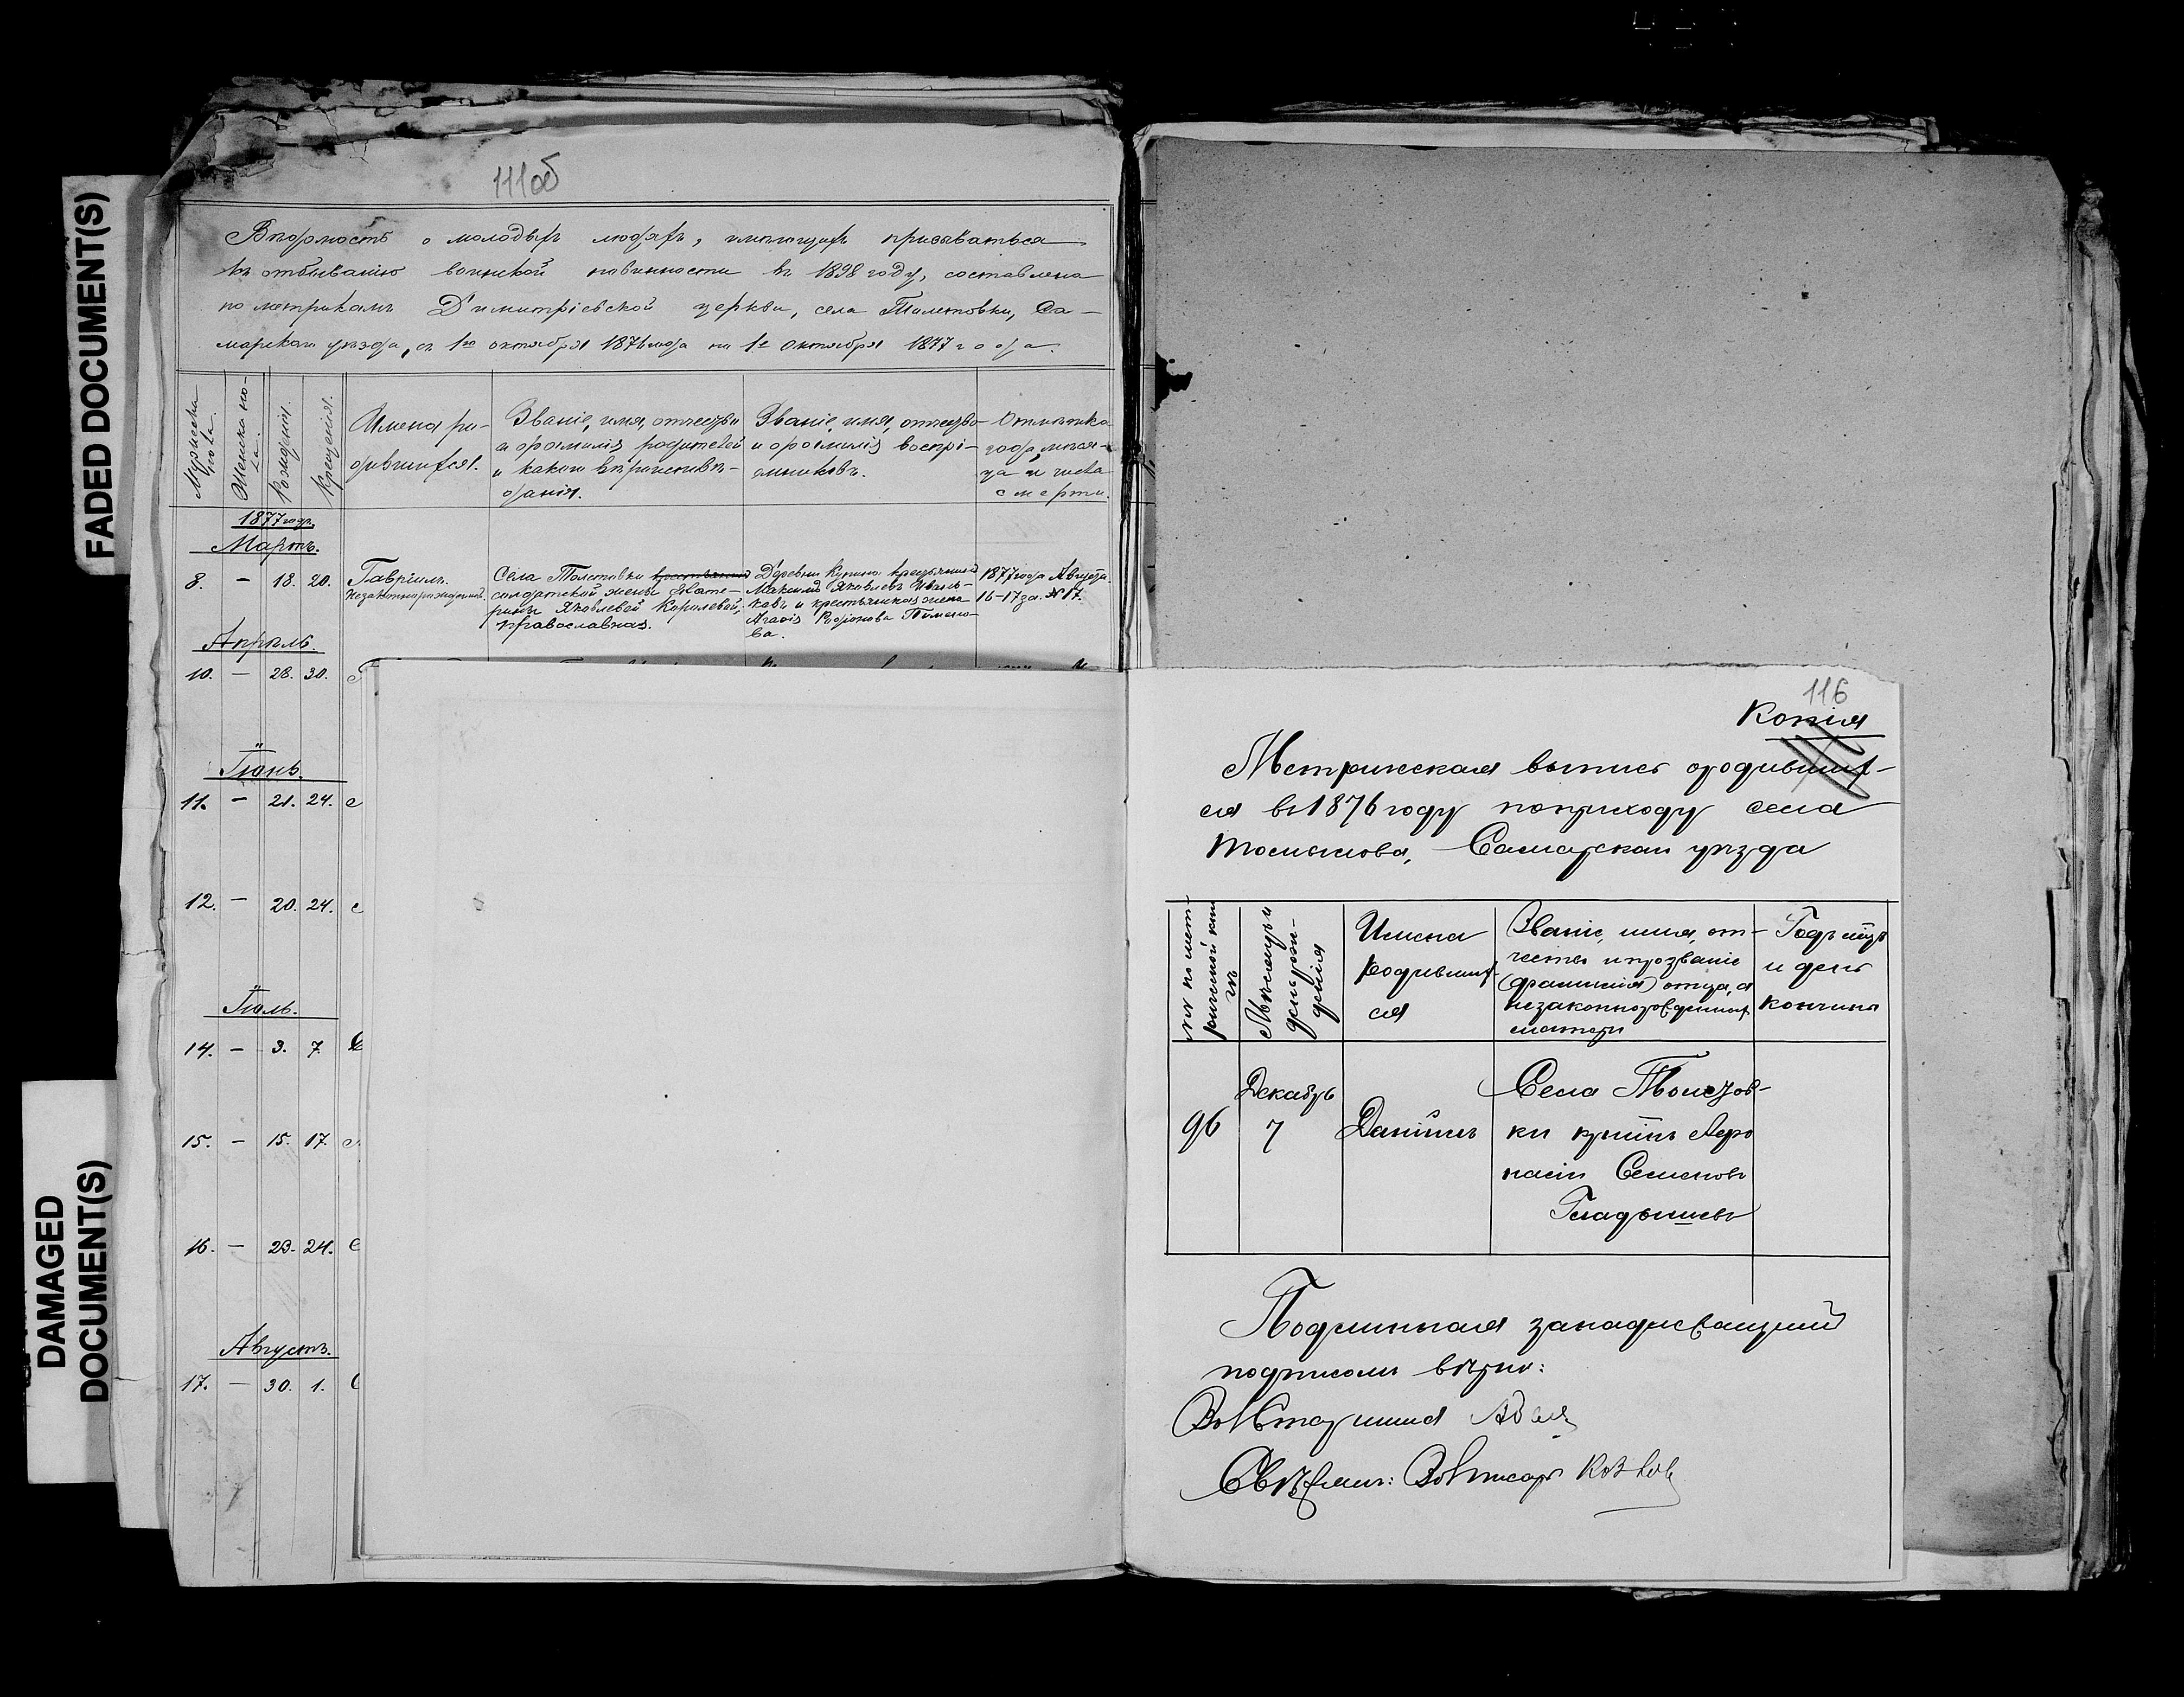 FADED DOCUMENT(S)
DAMAGED
DOCUMENT(S)
111об
Вѣдомость о молодыхъ людяхъ, имѣющихъ призываться
къ отбыванію воинской повинности въ 1898 году, составлена
по метрикамъ Димитріевской церкви, села Толстовки, Са-
марскаго уѣзда, съ 1го октября 1876 года по 1е Октября 1877 года.
Мужеска
пола.
Женска по-
ла.
Рожденія.
Крещенія.
Имена ро-
дившихся.
Званіе, имя, отчество
и фамилія родителей
и какого вѣроисповѣ-
данія.
Званіе, имя, отчество
и фамилія воспрі-
емниковъ.
Отмѣтка
года, мѣся-
ца и числа
смерти.
1877 годъ.
Мартъ.
8. — 18. 20.
Гавріилъ.
незаконнорожденный.
Села Толстовки крестьянина
солдатской жены Екате-
рины Яковлевой Королевой,
православная.
Деревни крестьянинъ
Максимъ Яковлевъ
ковъ и крестьянская жена
Родіонова
ва.
1877 года Августа
16-17 за № 17.
Апрѣль.
10. — 28. 30.
Іюнь.
11. — 21. 24. с
12. — 20. 24. с
Іюль.
14. — 3. 7.
15. — 15. 17. с
16. — 23. 24. с
Августъ.
17. — 30. 1. С
116
Копія
Метрическая выпись о родивших-
ся въ 1876 году по приходу села
Самарскаго уѣзда
№№ по мет-
рической кни
гѣ
Мѣсяцъ и
день рож-
денія
Имена
родивших-
ся
Званіе, имя, от-
чество и прозваніе
(фамилія) отца, а
незаконнорожденных
матери
Годъ мѣсц
и день
кончины
96
Декабрь
7
Даніилъ
Села Толстов-
ки крт̃нъ Аѳо
насій Семеновъ
Гладышевъ
Подлинная за надлежащимъ
подписомъ вѣрно:
Вол Старшина
Свѣрялъ: Вол писарь Козлов